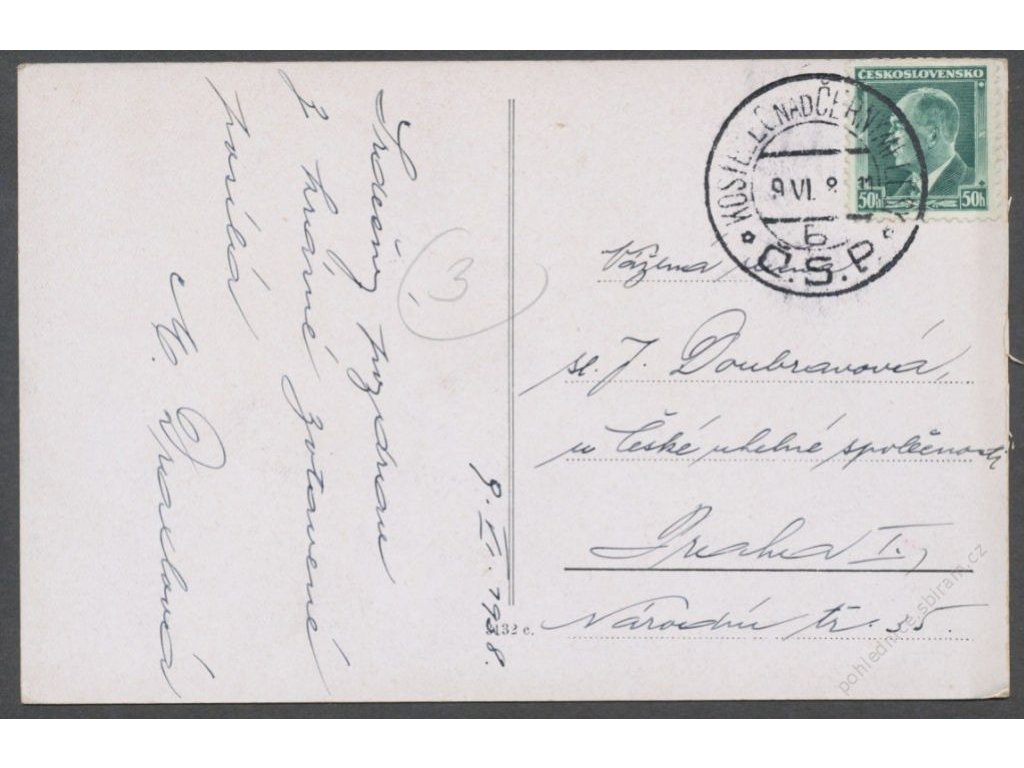 Srdečný pozdrav
z krásné zotavené
posílá
M. Draxlová
9. VI. 1938.
3
ČESKOSLOVENSKO
50h 50h
KOSTELEC NAD ČERN
9 VI. 8 11
b
Č.S.P.
Vážená
sl. J. Doubravová,
u České uhelné společnosti
Praha I.,
Národní tř. 35.
3132 c.
pohlednice.sbiram.cz